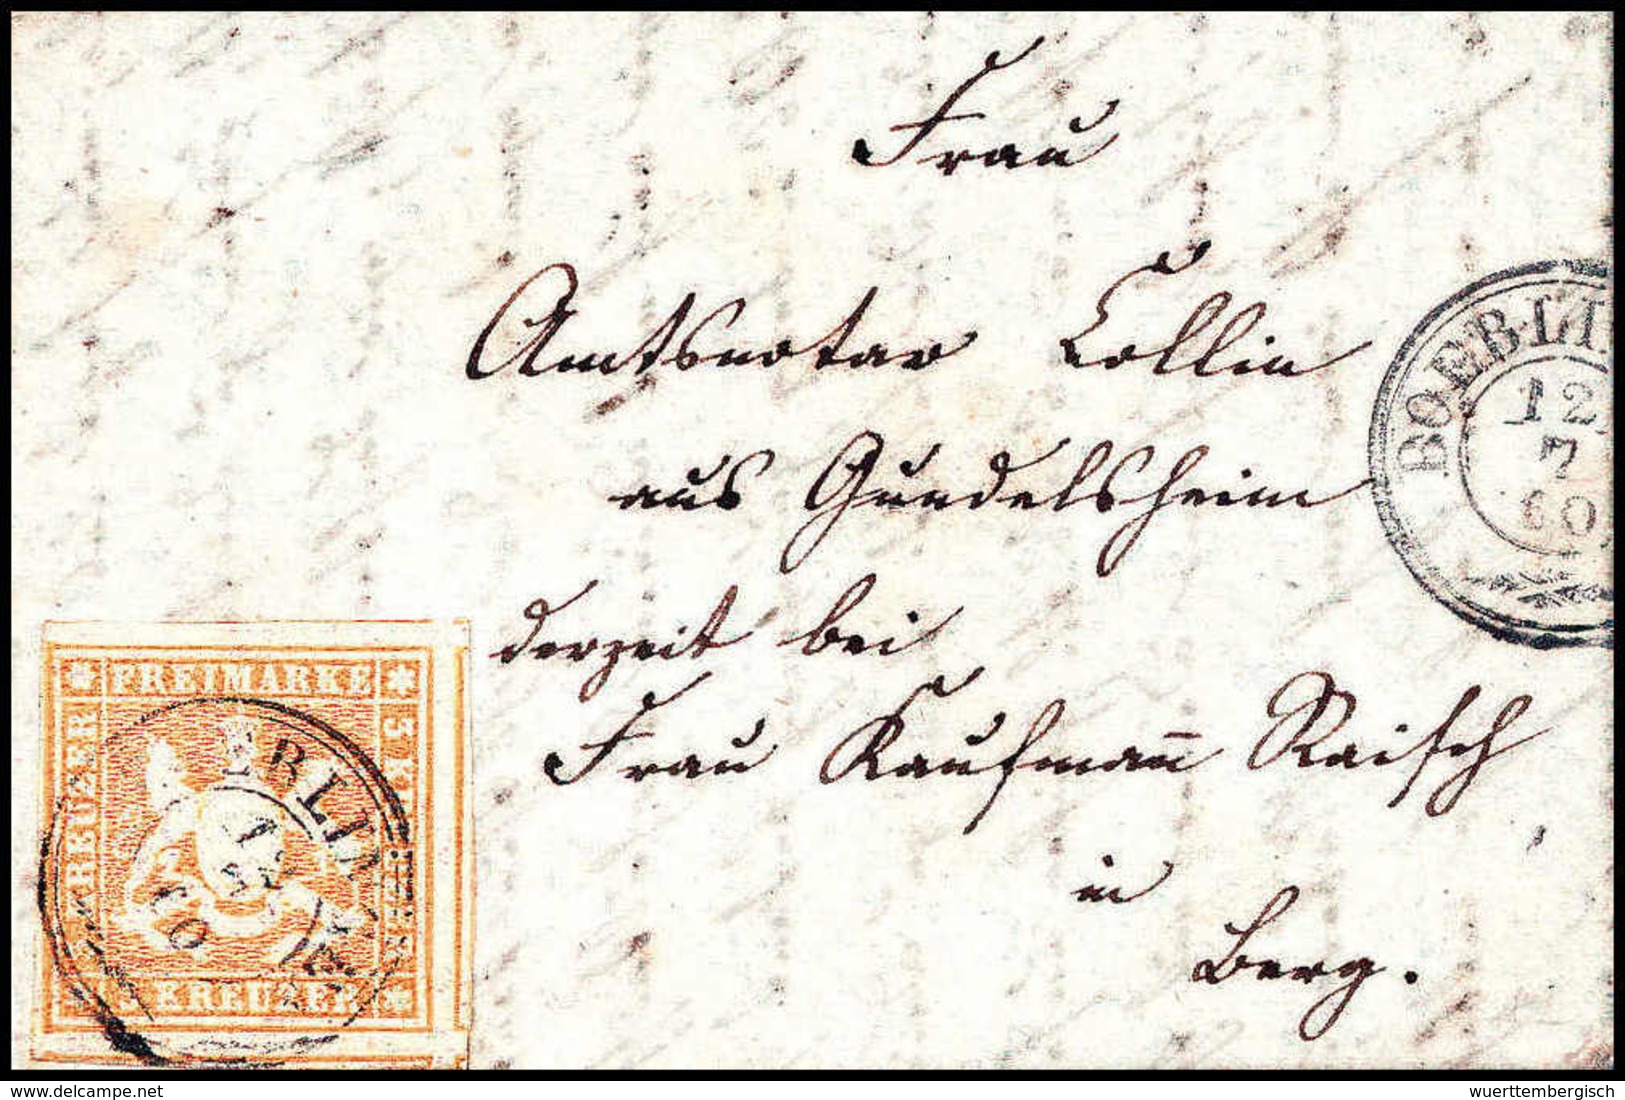 Frau
Amtsnotar Collin
aus Gundelsheim
derzeit bei
Frau Kaufmañ Raisch
in
Berg.
BOEBLI
12
7
60
FREIMARKE
KREUZER
3 K
KREUZER
ERLIN
12
60
www.delcampe.net
wuerttembergisch